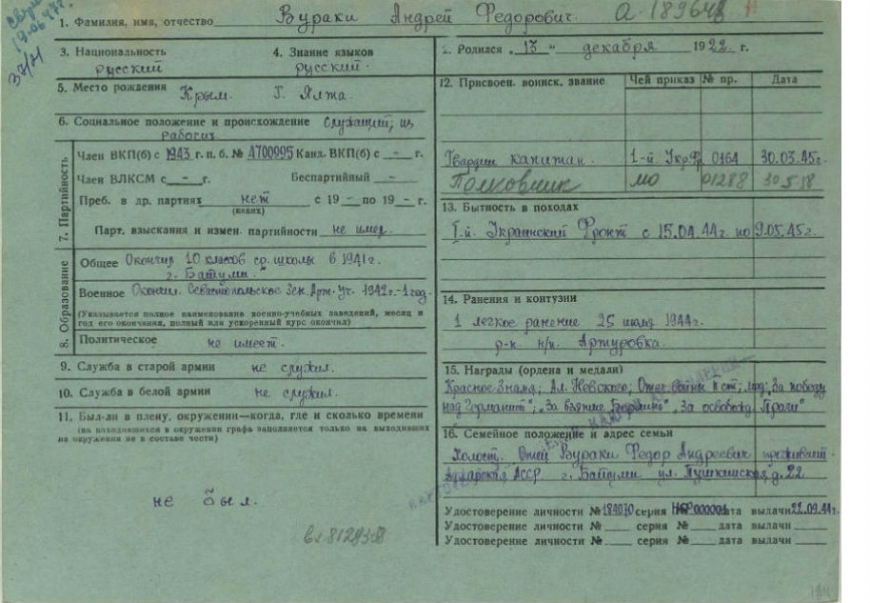 1. Фамилия, имя, отчество Вураки Андрей Федорович.
3. Национальность русский
4. Знание языков русский.
5. Место рождения Крым. г. Ялта.
6. Социальное положение и происхождение служащий, из рабочих
7. Партийность
Член ВКП(б) с 1943 г. п. б. № 4700995 Канд. ВКП(б) с - г.
Член ВЛКСМ с - г. Беспартийный -
Преб. в др. партиях нет с 19 - по 19 - г.
(каких)
Парт. взыскания и измен. партийности не имел
8. Образование
Общее Окончил 10 классов ср. школы в 1941 г.
г. Батуми.
Военное Окончил. Севастопольское Зен. Арт. Уч. 1942 г.-1 год.
(Указывается полное наименование военно-учебных заведений, месяц и
год его окончания, полный или ускоренный курс окончил)
Политическое не имеет.
9. Служба в старой армии не служил.
10. Служба в белой армии не служил.
11. Был-ли в плену, окружении—когда, где и сколько времени
(на находившихся в окружении графа заполняется только на выходивших
из окружения не в составе части)
не был.
2. Родился „13" декабря 1922 г.
12. Присвоен. воинск. звание Чей приказ № пр. Дата
Гвардии капитан. 1-й Укр.Фр. 0164 30.03.45г.
Полковник МО 01288
13. Бытность в походах
I-й. Украинский Фронт с 15.04.44г. по 9.05.45г.
14. Ранения и контузии
1 легкое ранение 25 июля 1944г.
р-н н/п Артуровка.
15. Награды (ордена и медали)
Красное Знамя; Ал. Невского; Отеч. Войны ст; „За победу
над Германией", „За взятие Берлина" „За освобожд. Праги"
16. Семейное положение и адрес семьи
Холост. Отец Вураки Федор Андреевич проживает
Аджарская АССР г. Батуми ул. Пушкинская д. 22
Удостоверение личности № серия дата выдачи 22.09.44г.
Удостоверение личности № серия № дата выдачи
Удостоверение личности № серия № дата выдачи